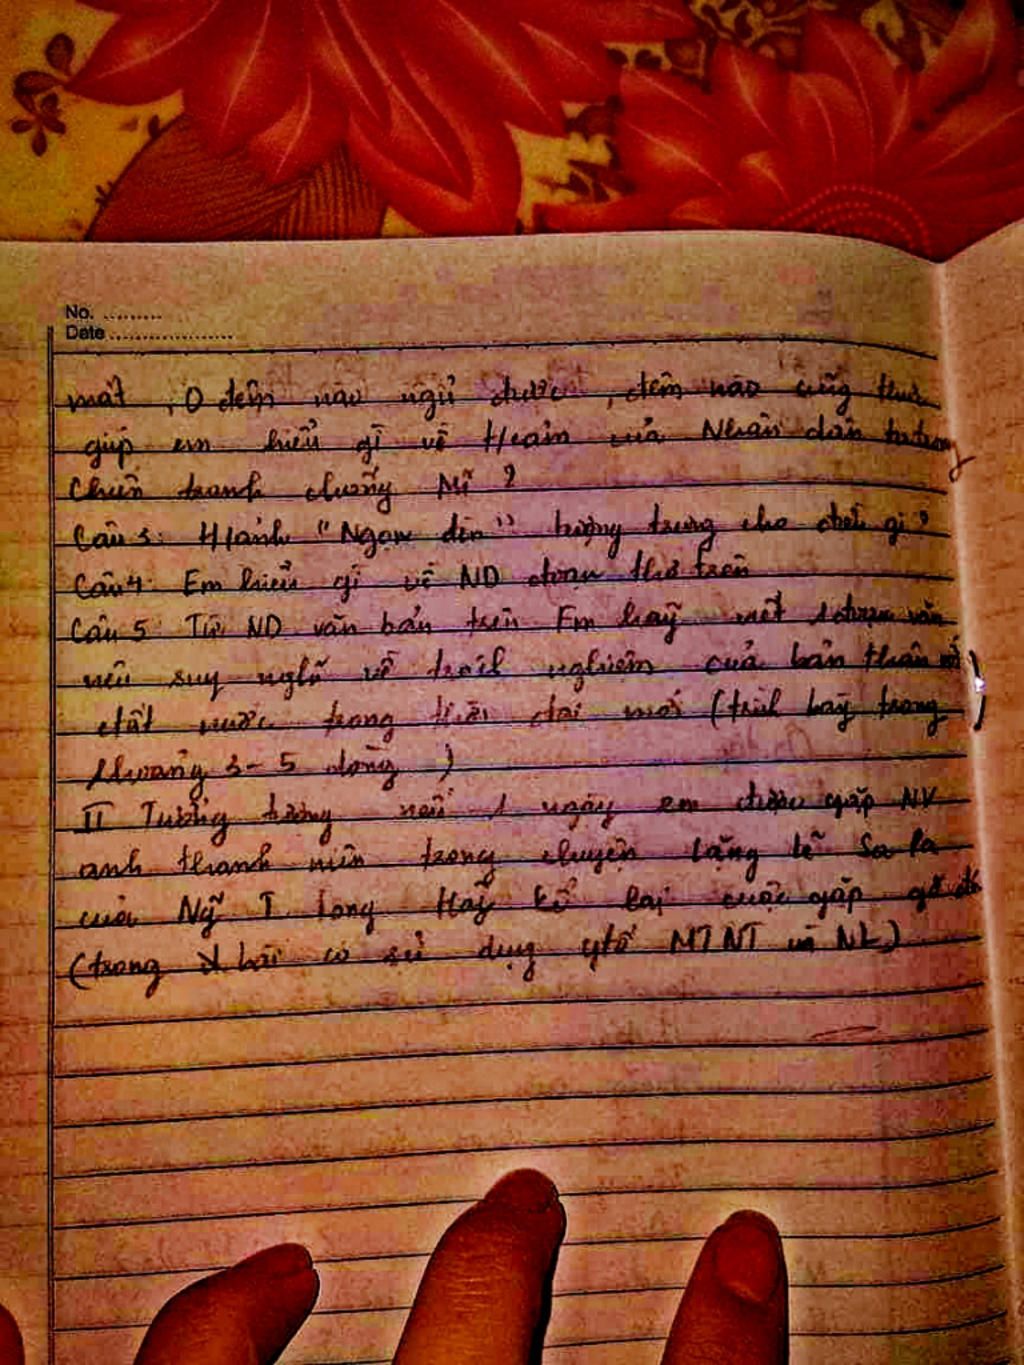 No. .........
Date ...................
mắt, 0 đêm nào ngủ được, đêm nào cũng thức
giúp em hiểu gì về Hcảm của Nhân dân ta trong
Chiến tranh chống Mĩ ?
Câu 3: H/ảnh "Ngọn đèn" tượng trưng cho điều gì ?
Câu 4: Em hiểu gì về ND đoạn thơ trên
Câu 5 Từ ND văn bản trên Em hãy viết 1 đoạn văn
nêu suy nghĩ về trách nghiệm của bản thân với
đất nước trong thời đại mới (trình bày trong
khoảng 3-5 dòng )
II Tưởng tượng nếu 1 ngày em được gặp NV
anh thanh niên trong chuyện Lặng lẽ Sa Pa
của Ng~ T Long Hãy kể lại cuộc gặp gỡ đó
(trong bài có sử dụng ytố MTNT và NL)